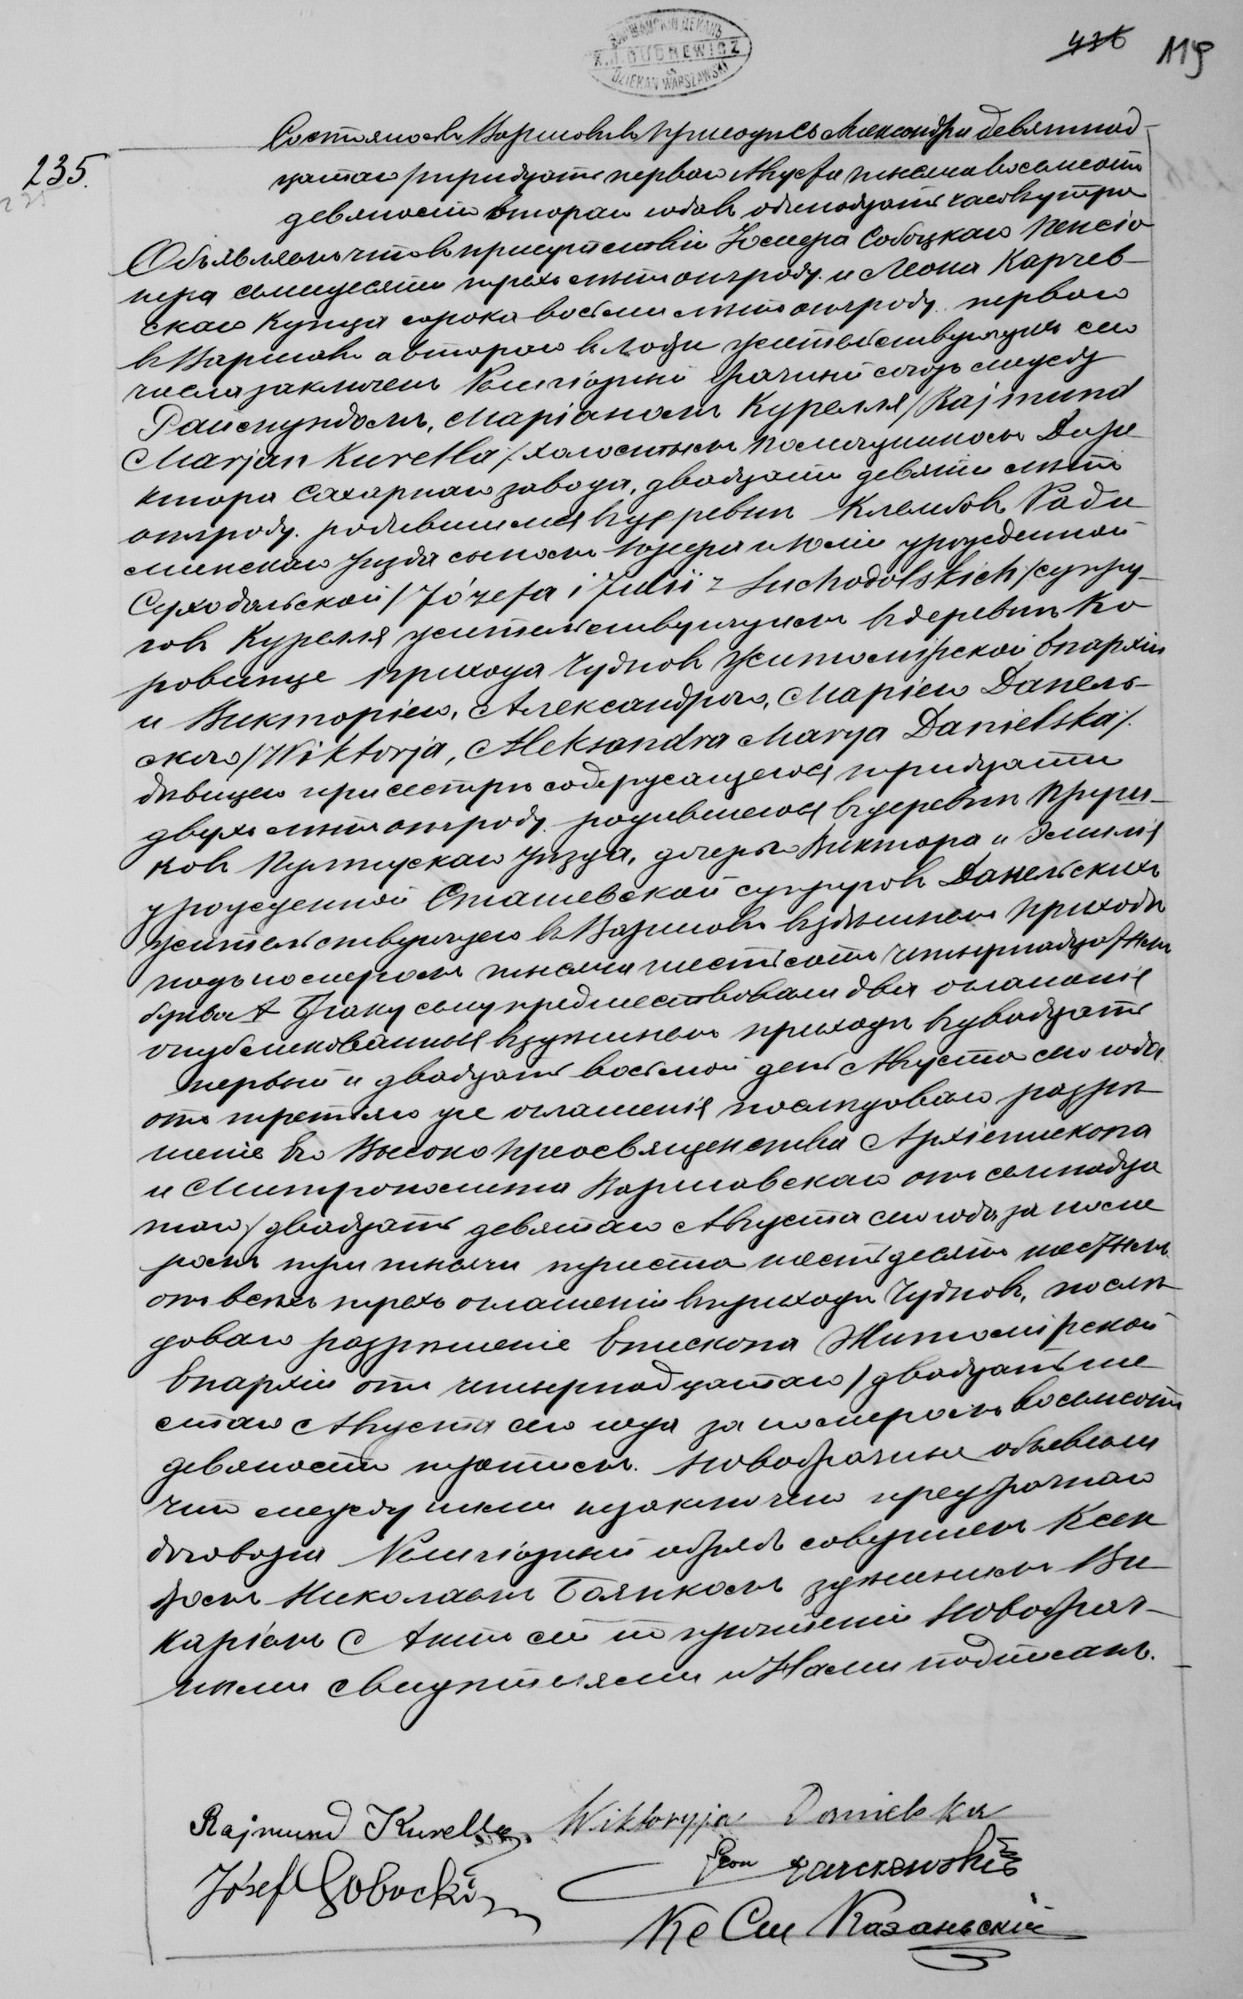 ВАРШАВСКІЙ ДЕКАНЪ
X. J. DUDREWICZ
DZIEKAN WARSZAWSKI
436 119
235.
Состоялось въ Варшавѣ въ приходѣ Св. Александра девятнад-
цатаго/тридцать перваго Августа тысяча восемьсотъ
девяносто втораго года въ одиннадцать часовъ утра
Объявляемъ что въ присутствіи Юзефа Собоцкаго Пенсіо
нера семидесяти трехъ лѣтъ отъ роду и Леона Карчев-
скаго Купца сорока восьми лѣтъ отъ роду первый
въ Варшавѣ а второй въ Лодзи жительствующихъ сего
числа заключенъ Религіозный брачный союзъ между
Раймундомъ, Маріаномъ Курелля /Rajmund
Marjan Kurella/ холостымъ помощникомъ Дире
ктора Сахарнаго завода, двадцати девяти лѣтъ
отъ роду родившимся въ деревнѣ Клембовъ Ради
минскаго уѣзда сыномъ Юзефа и Юліи урожденной
Суходольской /Józefa i Julii z Suchodolskich/ супру-
говъ Курелля жительствующимъ въ деревнѣ Ко
ровинце прихода Чудновъ Житомірской Епархіи
и Викторіею, Александрою, Маріею Данель-
скою /Wiktorja, Aleksandra Marya Danielska/.
дѣвицею при сестрѣ содержащеюся тридцати
двухъ лѣтъ отъ роду родившеюся въ деревнѣ
ковъ Пултускаго уѣзда, дочерью Виктора и Эмиліи
урожденной Сташевской супруговъ Данельскихъ
жительствующею въ Варшавѣ въ здѣшнемъ приходѣ
подъ номеромъ тысяча шестьсотъ четырнадцатымъ
буква А Браку сему предшествовали два оглашенія
опубликованныя въ здѣшнемъ приходѣ въ двадцать
первый и двадцать восьмой день Августа сего года
отъ третьяго же оглашенія послѣдовало разрѣ
шеніе Его Высокопреосвященства Архіепископа
и Митрополита Варшавскаго отъ семнадца
таго/двадцать девятаго Августа сего года за номе
ромъ три тысячи триста шестьдесятъ шестымъ
отъ всѣхъ трехъ оглашеній въ приходѣ Чудновъ, послѣ
довало разрѣшеніе Епископа Житомірской
Епархіи отъ четырнадцатаго/двадцать ше
стаго Августа сего года за номеромъ восемьсотъ
девяносто третьимъ. Новобрачные объявили
что между ними незаключено предбрачнаго
договора Религіозный обрядъ совершенъ Ксен
дзомъ Николаемъ здѣшнимъ Ви
каріемъ Актъ сей по прочтеніи Новобрач-
ными свидѣтелями и Нами подписанъ.
Rajmund Kurella Wiktoryja Danielska
Józef Sobocki Leon Karczewski
Кс Казаньскій